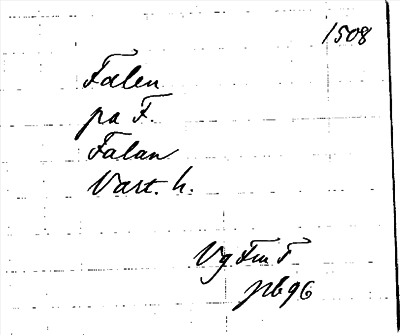 1508
Falen
pa F.
Falan
Vart. h.
Vg Fm F
pb96